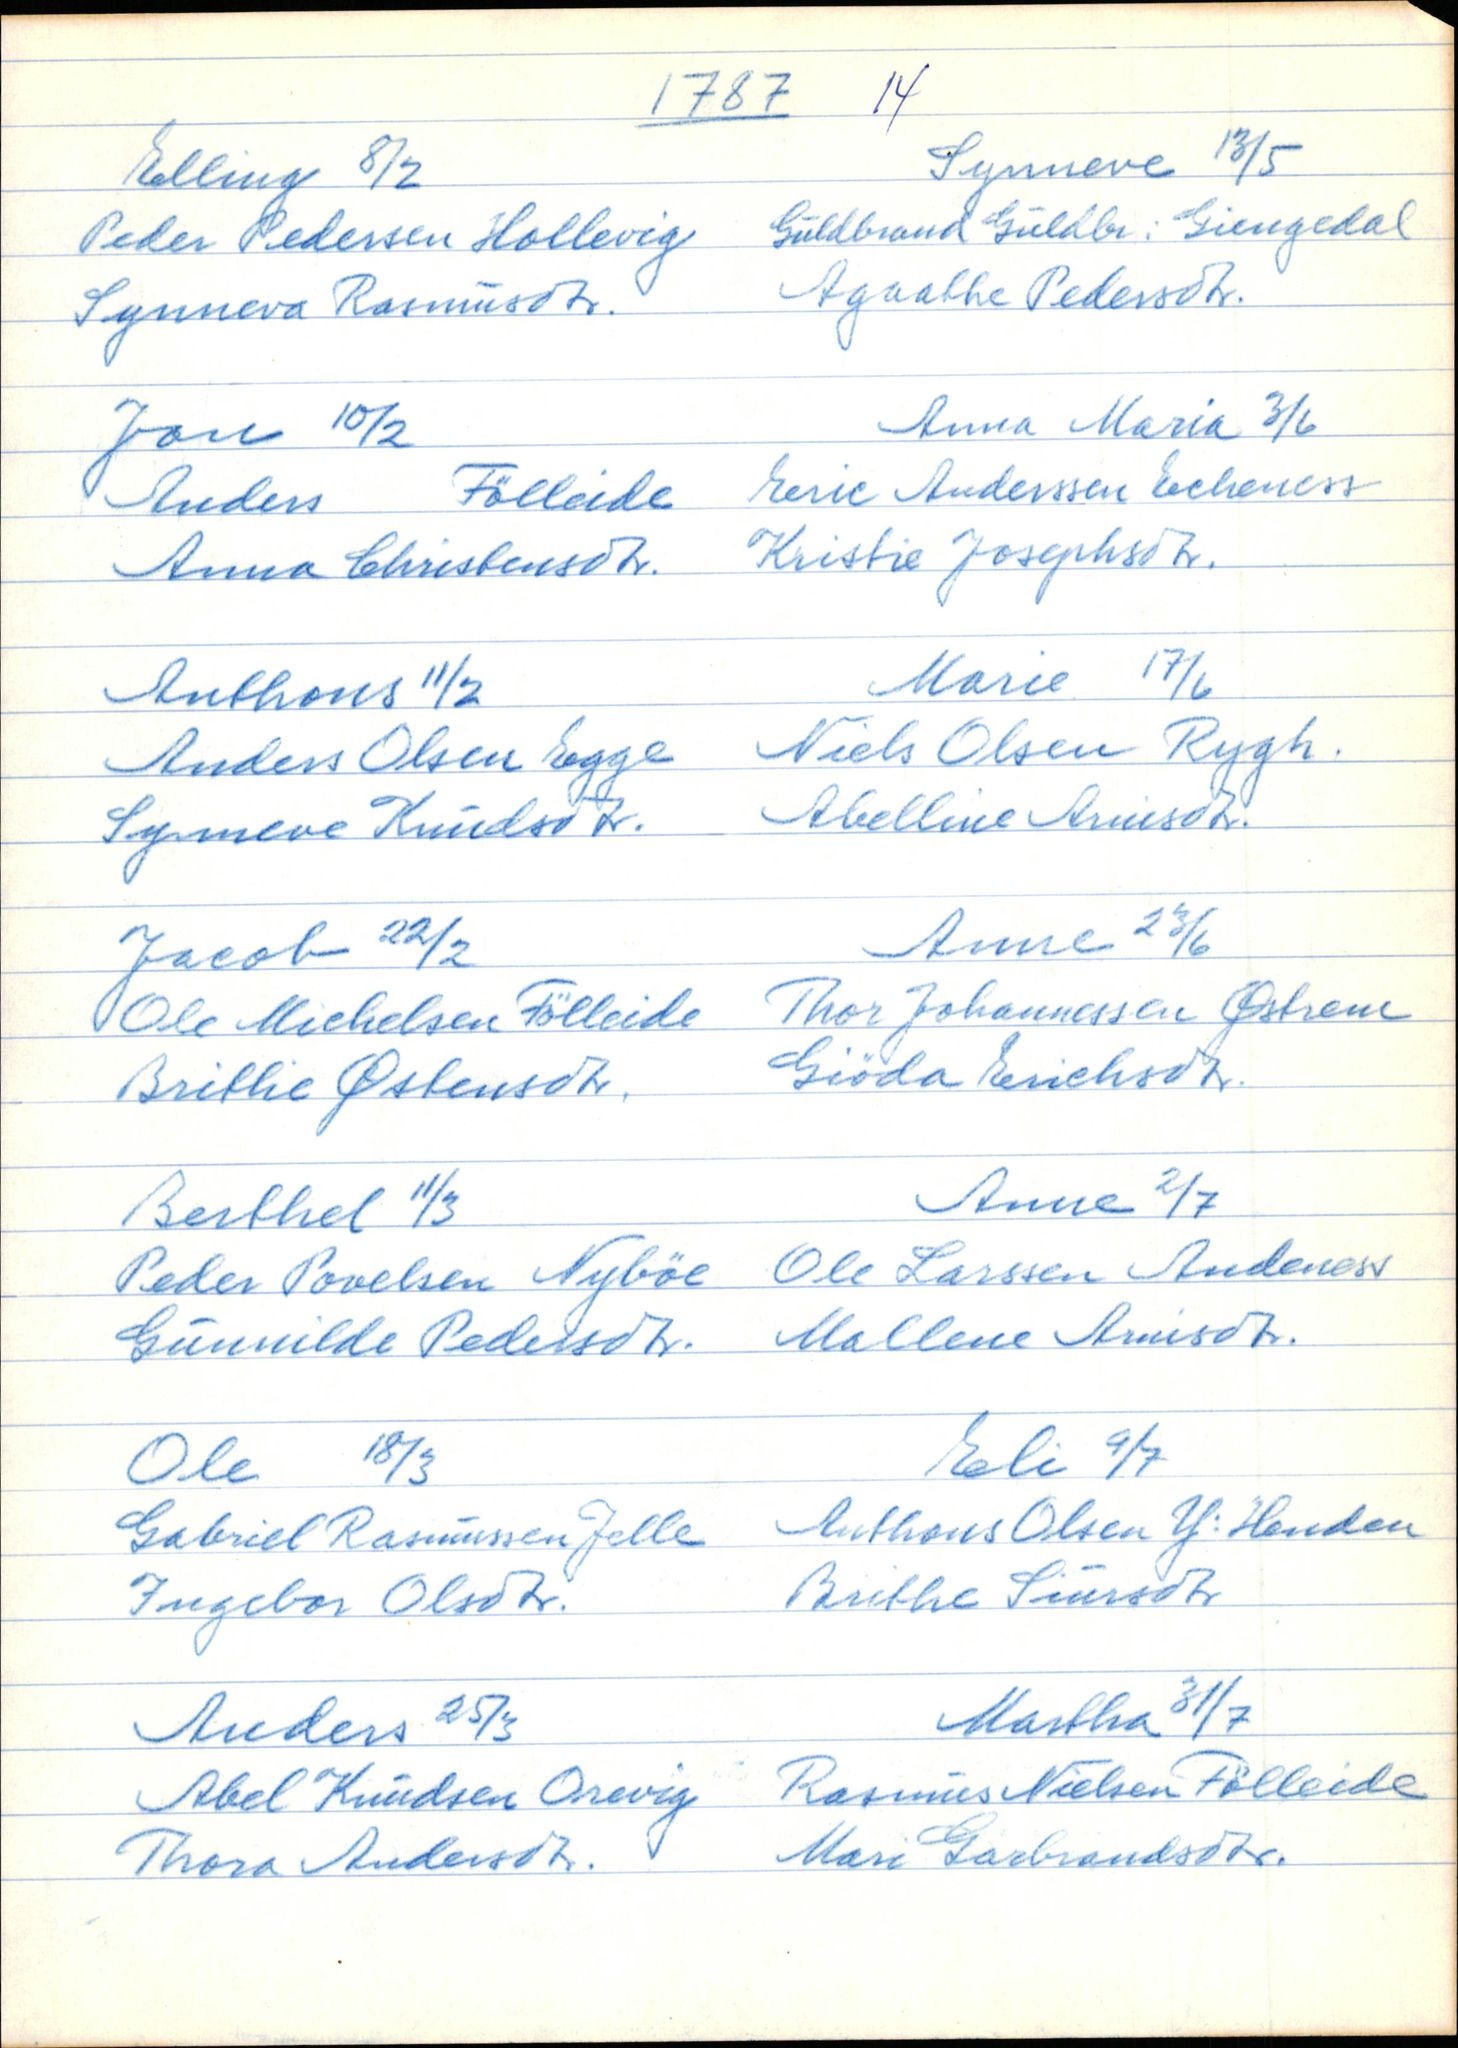 1787 14
Elling 8/2
Peder Pedersen Hollevig
Synneva Rasmusdtr.
Jon 10/2
Anders Fölleide
Anna Christensdtr.
Anthons 11/2
Anders Olsen Egge
Synneve Knudsdtr.
Jacob 22/2
Ole Michelsen Fölleide
Brithe Østensdtr.
Berthel 11/3
Peder Povelsen Nyböe
Gunnilde Pedersdtr.
Ole 18/3
Gabriel Rasmussen Jelle
Ingebor Olsdtr.
Anders 25/3
Abel Knudsen Orevig
Thora Andersdtr.
Synneve 13/5
Guldbrand Guldbr: Giengedal
Agaathe Pedersdtr.
Anna Maria 3/6
Eric Anderssen Echeness
Kristie Josephsdtr.
Marie 17/6
Niels Olsen Rygh.
Abelline Arnisdtr.
Anne 23/6
Thor Johannessen Østrem
Giöda Erichsdtr.
Anne 2/7
Ole Larssen Andeness
Mallene Arnisdtr.
Eli 9/7
Anthons Olsen Y: Henden
Brithe Siursdtr
Martha 31/7
Rasmus Nielsen Fölleide
Mari Garbrandsdtr.